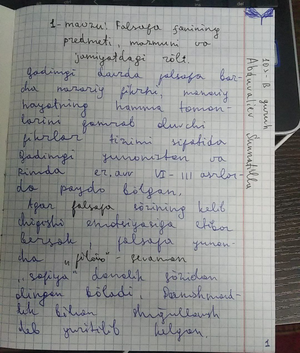 1-mavzu! Falsafa fanining
predmeti, mazmuni va
jamiyatdagi roli
Qadimgi davrda falsafa bar-
cha nazariy fikrni, manaviy
hayotning hamma tomon-
larini qamrab oluvchi
fikrlar tizimi sifatida
qadimgi yunoniston va
Rimda er.avv VI-III asrlar-
da paydo bo'lgan.
Agar falsafa so'zining kelib
chiqishi etimologiyasiga e'tibor
bersak falsafa yunon-
cha „fileo" - sevaman
„sofiya" donolik so'zidan
olingan bo'ladi. Danishmand-
lik bilan shug'ullanish
deb yuritilib kelgan.
103-B guruh
Shamsiddin
1